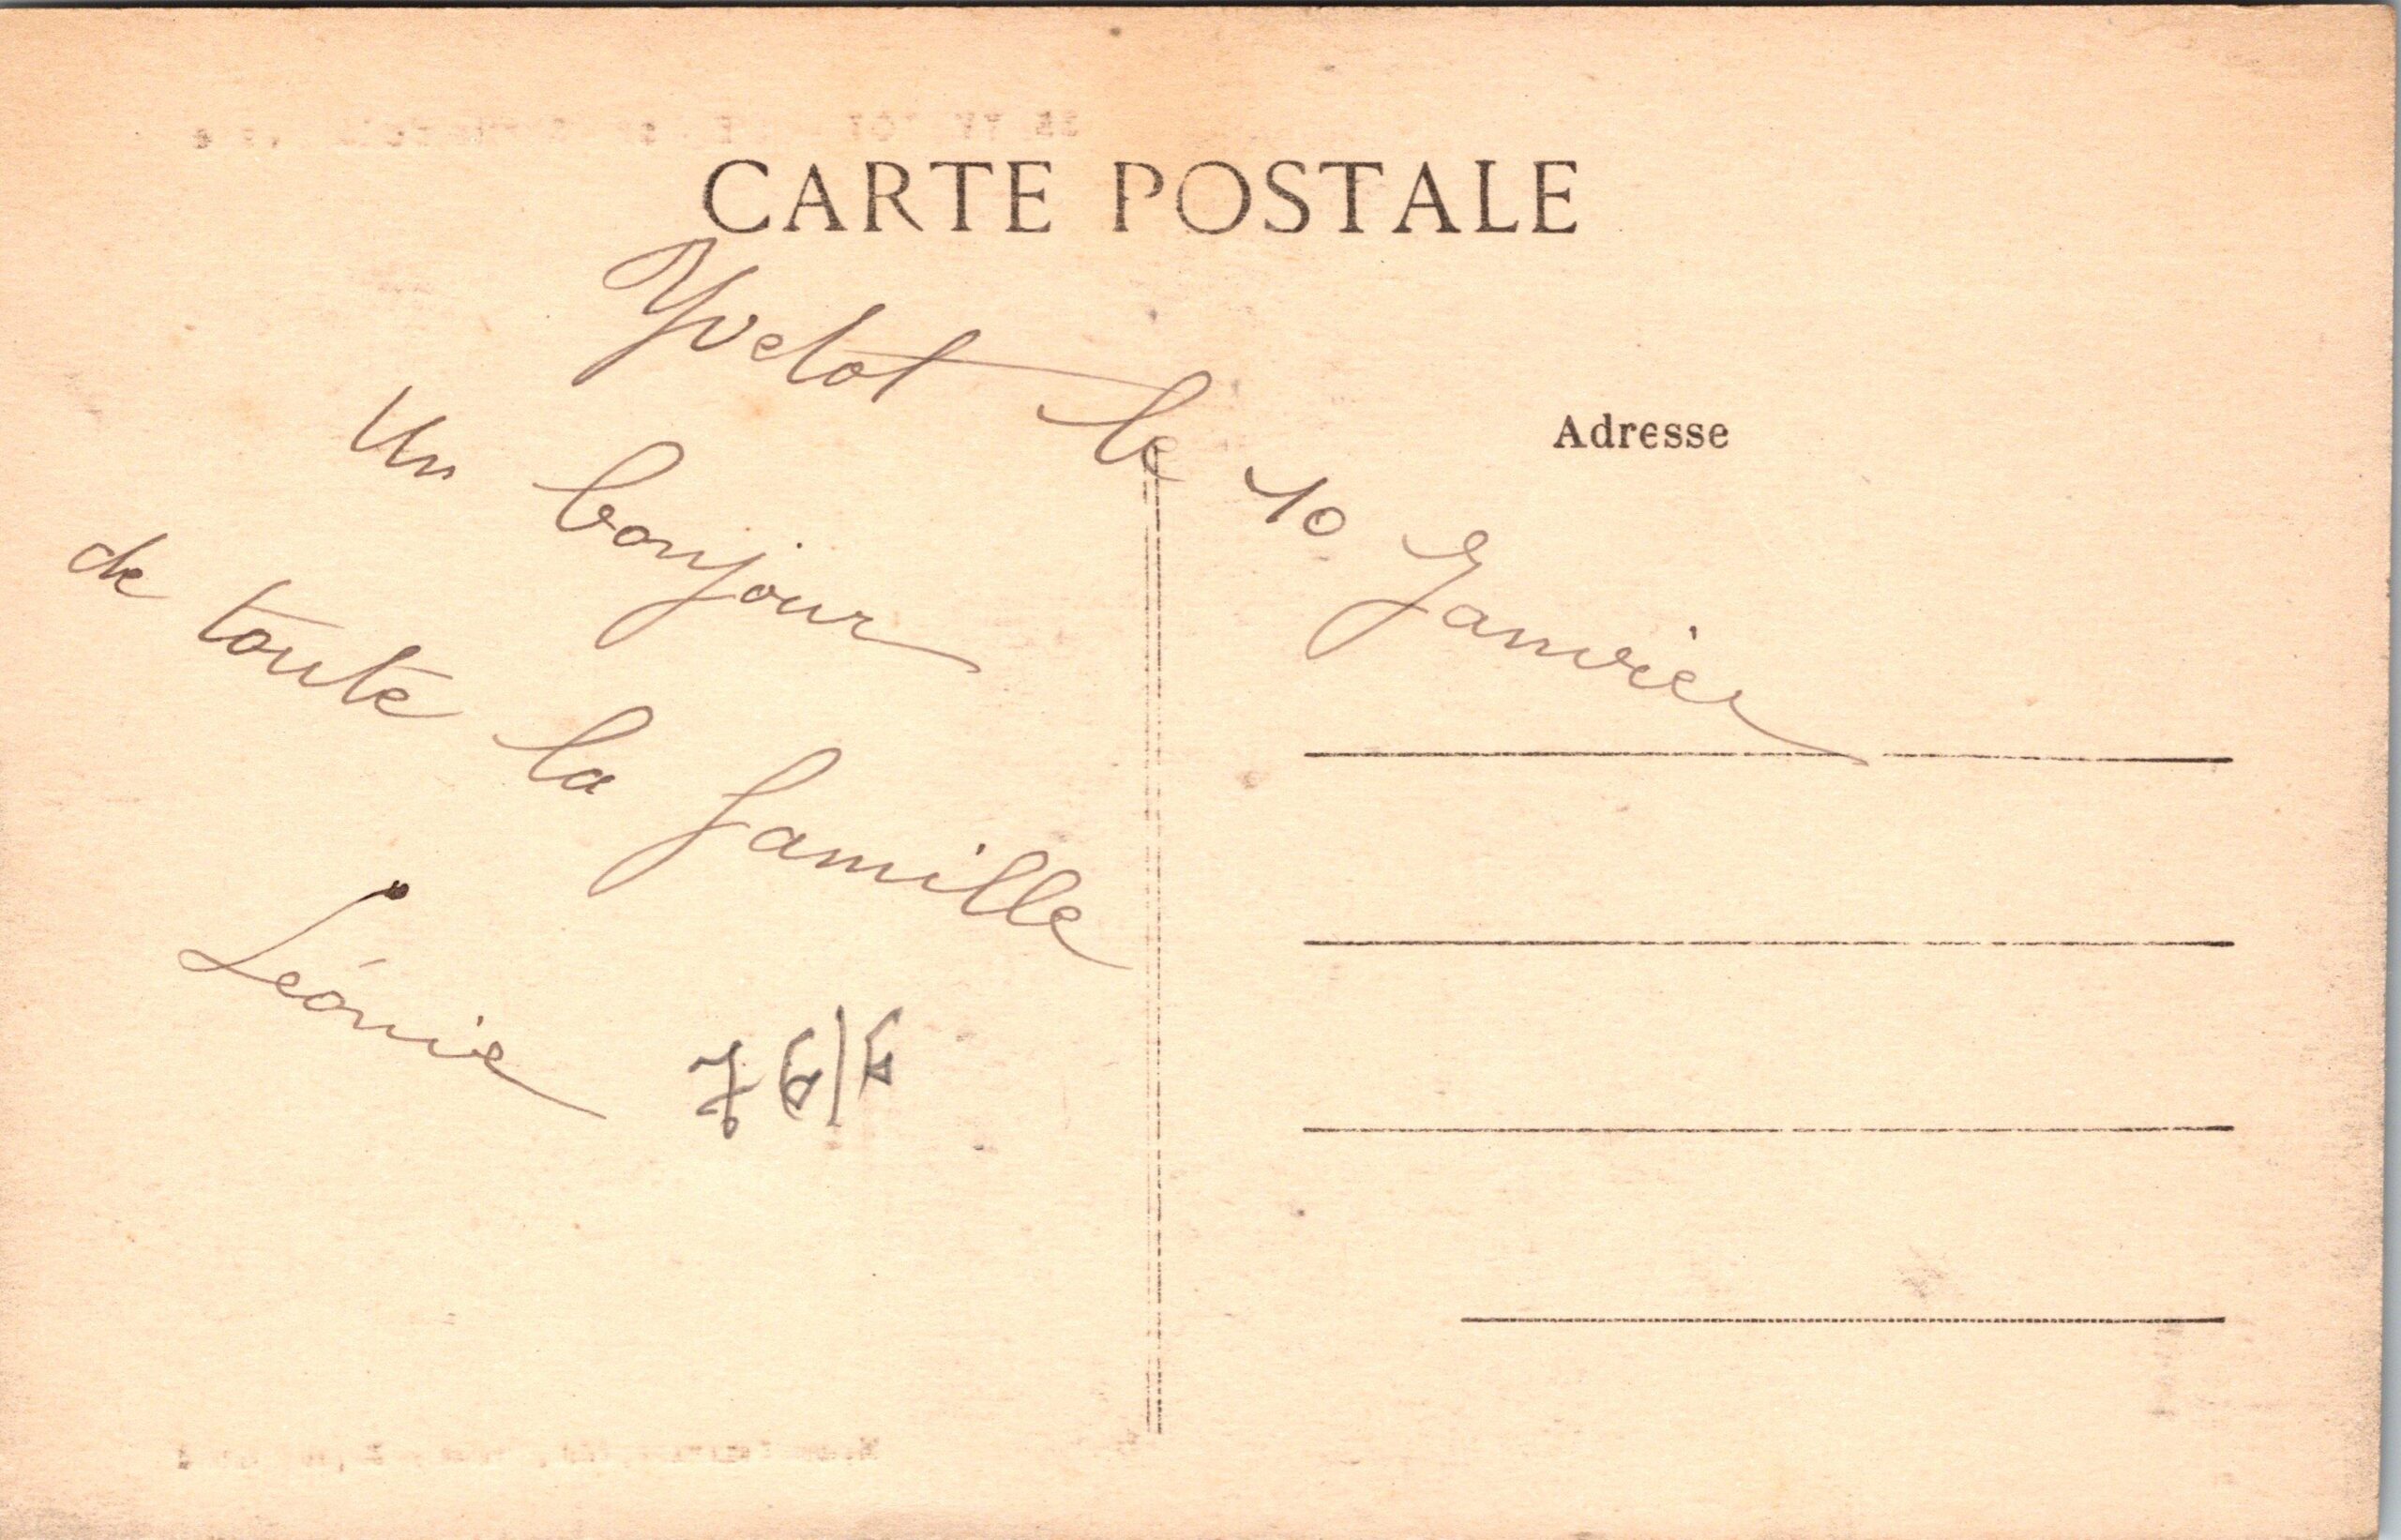 CARTE POSTALE
Yvetot le 10 Janvier
Adresse
Un bonjour
de toute la famille
Léonie